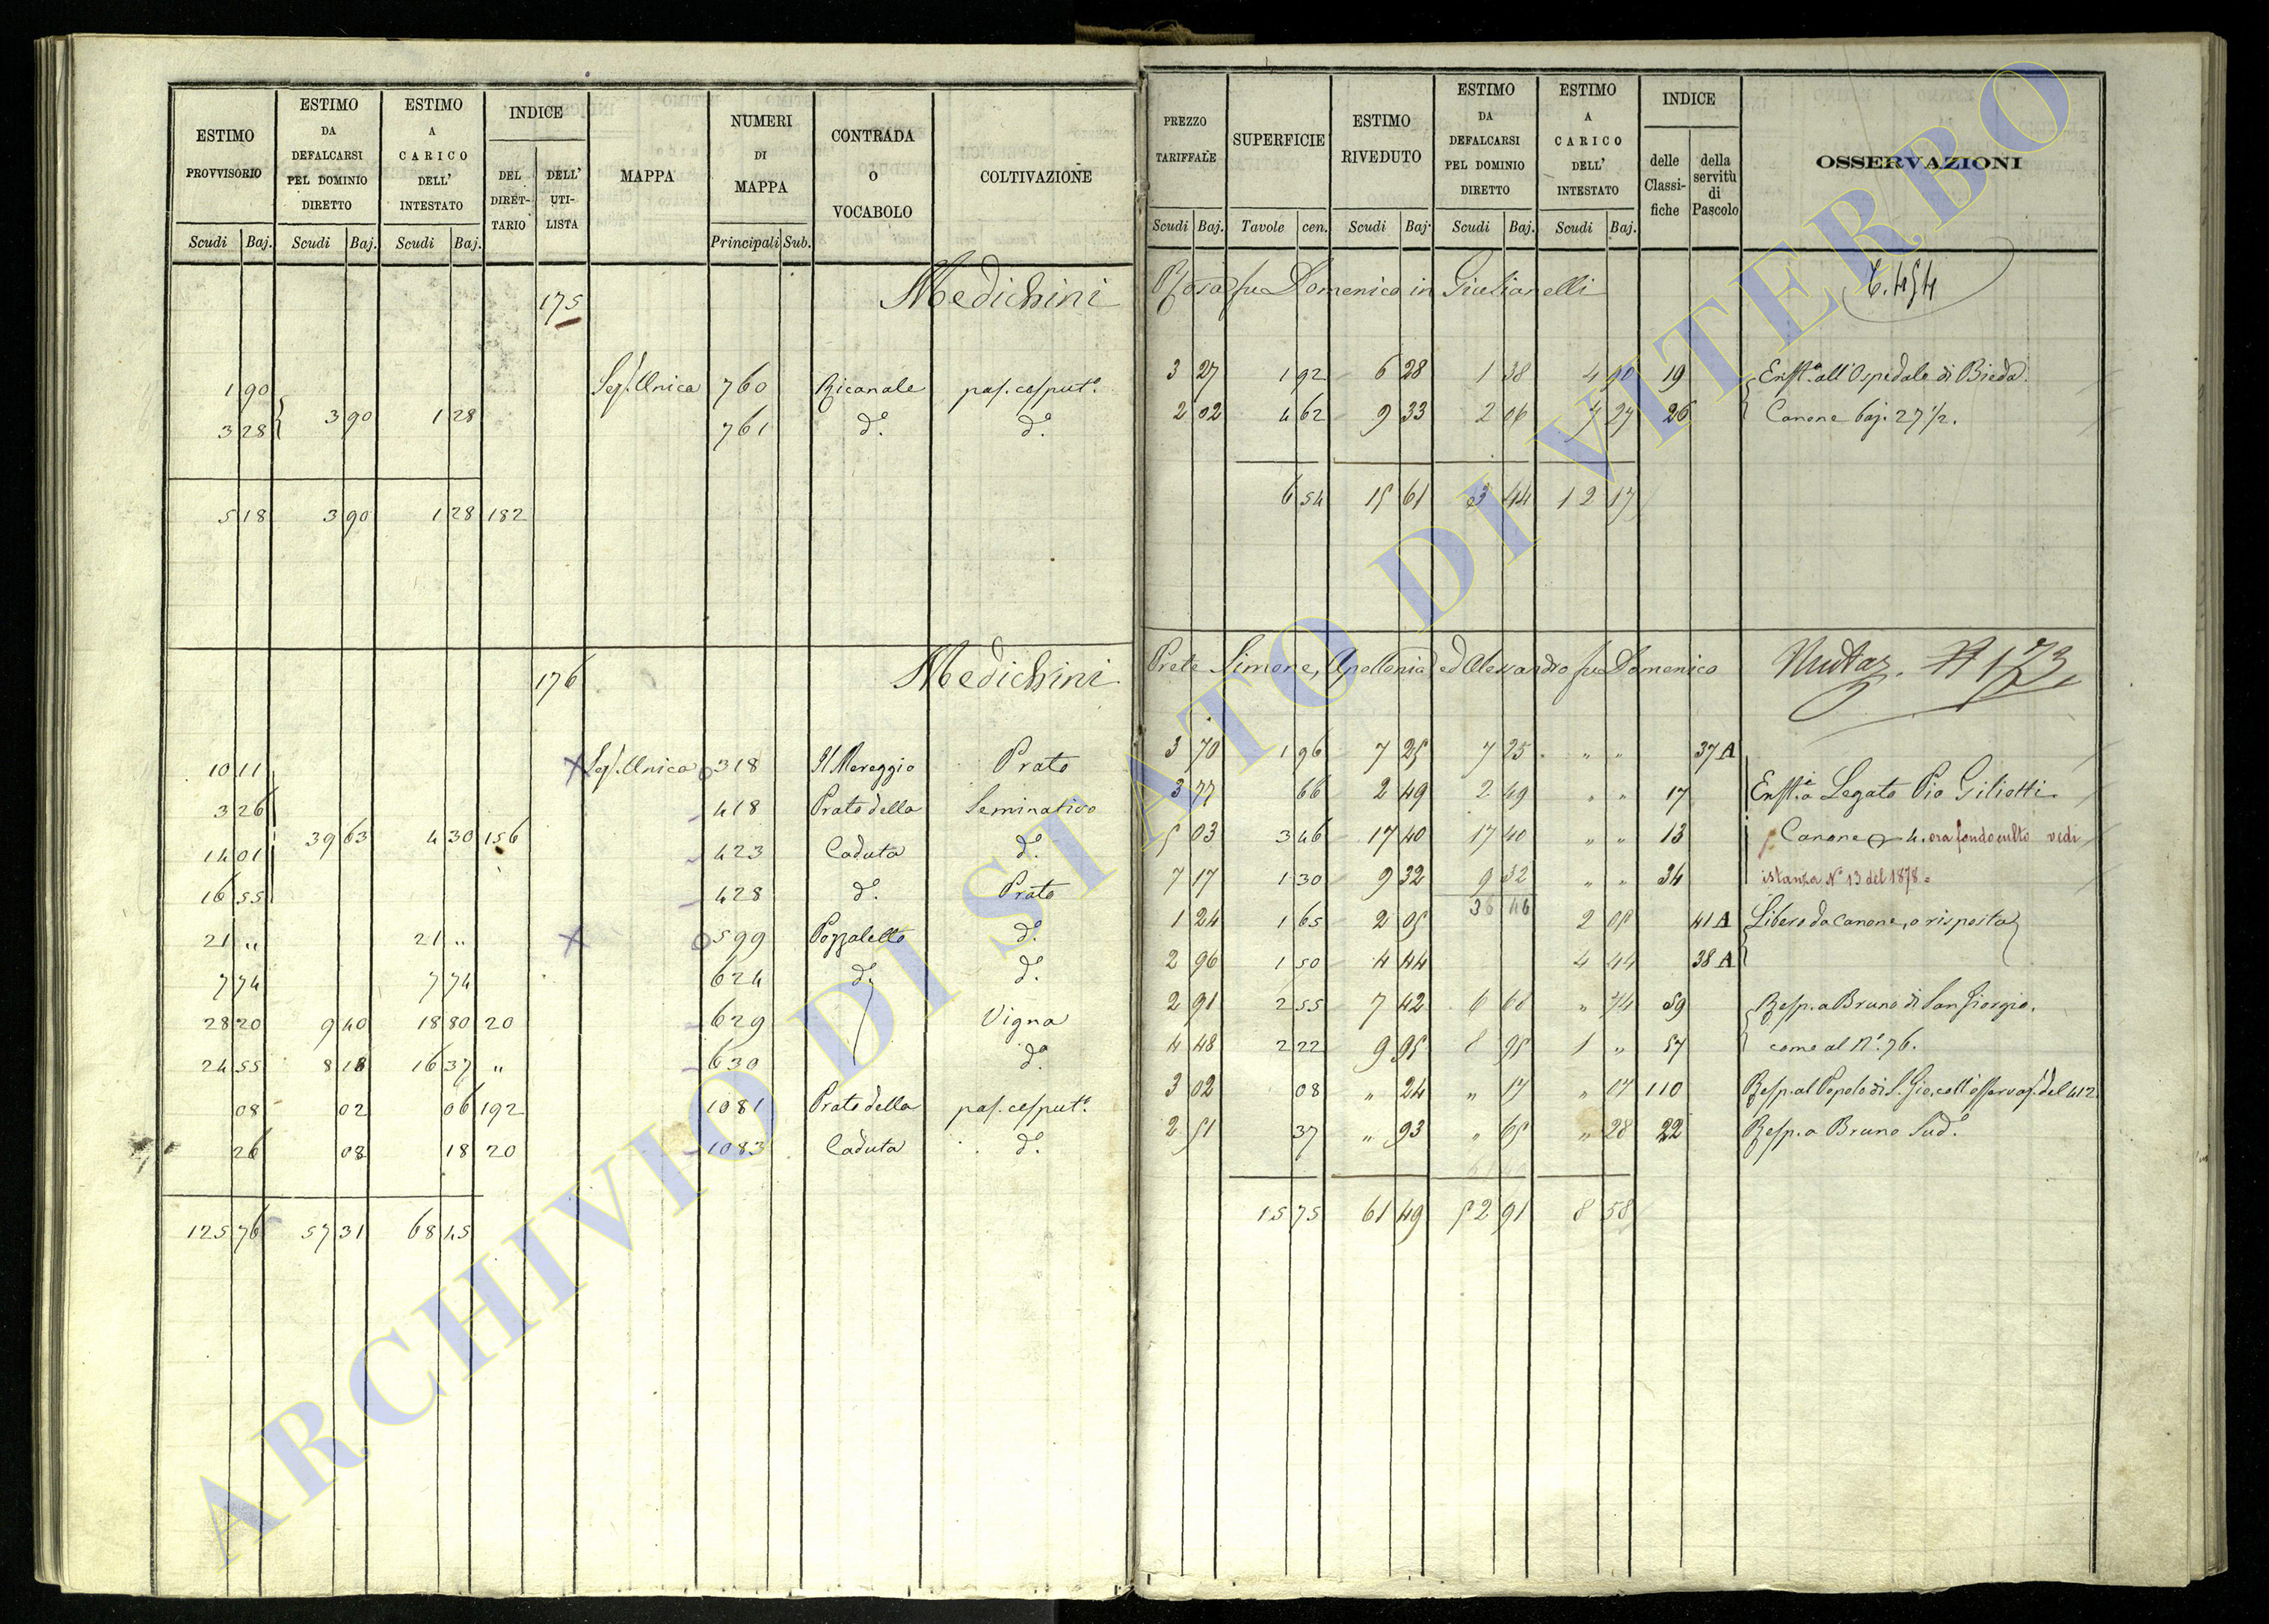 ESTIMO PROVVISORIO Scudi Baj.
ESTIMO DA DEFALCARSI PEL DOMINIO DIRETTO Scudi Baj.
ESTIMO A CARICO DELL' INTESTATO Scudi Baj.
INDICE DEL DIRET-TARIO DELL' UTI-LISTA
MAPPA
NUMERI DI MAPPA Principali Sub.
CONTRADA O VOCABOLO
COLTIVAZIONE
PREZZO TARIFFALE Scudi Baj.
SUPERFICIE Tavole cen.
ESTIMO RIVEDUTO Scudi Baj.
ESTIMO DA DEFALCARSI PEL DOMINIO DIRETTO Scudi Baj.
ESTIMO A CARICO DELL' INTESTATO Scudi Baj.
INDICE delle Classi-fiche della servitù di Pascolo
OSSERVAZIONI
175 Medichini Rosa fu Domenico in Giulianelli
1 90 Sez. Unica 760 Ricanale pas. cesput.º 3 27 1 92 6 28 1 38 4 90 19 Enft.ª all'Ospedale di Bieda.
3 28 3 90 1 28 761 d.º d.º 2 02 4 62 9 33 2 06 7 27 26 Canone baj. 27 1/2.
6 54 15 61 3 44 12 17
5 18 3 90 1 28 182
176 Medichini Prete Simone, Apollonia ed Alessandro fu Domenico Mutaz. N 173
10 11 Sez. Unica 318 Il Mereggio Prato 3 70 1 96 7 25 7 25 " " 37 A
3 26 418 Prato della Seminativo 3 77 66 2 49 2 49 " " 17 Enft.ª a Legato Pio Giliotti
39 63 4 30 156
14 01 423 Caduta d.º 5 03 3 46 17 40 17 40 " " 13 Canone 4. ora fondo culto vedi
16 55 428 d.º Prato 7 17 1 30 9 32 9 32 " " 34 istanza N° 13 del 1878.
36 46
21 " 21 " 599 Pozzaletto d.º 1 24 1 65 2 05 2 05 41 A Libero da canone, o risposta
7 74 7 74 624 d.º d.º 2 96 1 50 4 44 4 44 38 A
28 20 9 40 18 80 20 629 Vigna 2 91 2 55 7 42 6 68 " 74 59 Resp. a Bruno di San Giorgio.
24 55 8 18 16 37 " 630 d.ª 4 48 2 22 9 95 8 95 1 " 57 come al N.º 76.
08 02 06 192 1081 Prato della pas. cesput.º 3 02 08 " 24 " 17 " 17 110 Resp. al Popolo di S. Gio, coll'osservaz. del 412
26 08 18 20 1083 Caduta d.º 2 51 37 " 93 " 65 " 28 22 Resp. a Bruno Sud.º
125 76 57 31 68 45 15 75 61 49 52 91 8 58
ARCHIVIO DI STATO DI VITERBO